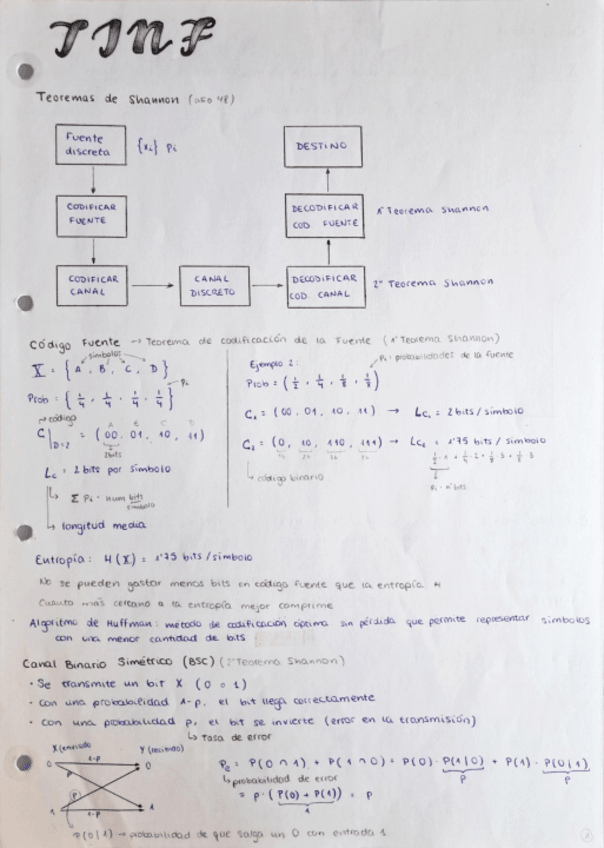 TINF
Teoremas de Shannon (año 48)
Fuente discreta
{xi} Pi
DESTINO
CODIFICAR FUENTE
DECODIFICAR COD FUENTE
1º Teorema Shannon
CODIFICAR CANAL
CANAL DISCRETO
DECODIFICAR COD CANAL
2º Teorema Shannon
Código Fuente → Teorema de codificación de la Fuente (1º Teorema Shannon)
símbolos
X = { A , B , C , D }
Pi
Prob = { 1/4 , 1/4 , 1/4 , 1/4 }
código
A B C D
C|D=2 = (00, 01, 10, 11)
2bits
Lc = 2 bits por símbolo
Σ Pi · num bits/símbolo
longitud media
Ejemplo 2:
Pi: probabilidades de la fuente
Prob = (1/2 , 1/4 , 1/8 , 1/8)
C1 = (00, 01, 10, 11) → Lc1 = 2 bits/símbolo
C2 = (0, 10, 110, 111) → Lc2 = 1'75 bits/símbolo
1/2 · 1 + 1/4 · 2 + 1/8 · 3 + 1/8 · 3
código binario
Pi · nº bits
Entropía: H(X) = 1'75 bits/símbolo
No se pueden gastar menos bits en código fuente que la entropía H
Cuanto más cercano a la entropía mejor comprime
Algoritmo de Huffman: método de codificación óptima sin pérdida que permite representar símbolos
con una menor cantidad de bits
Canal Binario Simétrico (BSC) (2º Teorema Shannon)
· Se transmite un bit X (0 o 1)
· con una probabilidad 1-p, el bit llega correctamente
· con una probabilidad p, el bit se invierte (error en la transmisión)
tasa de error
X (enviado Y (recibido)
0 1-p 0
p
(p)
1 1-p 1
Pe = P(0 ∩ 1) + P(1 ∩ 0) = P(0) · P(1|0) + P(1) · P(0|1)
p p
probabilidad de error
= p · (P(0) + P(1)) = p
1
P(0|1) → probabilidad de que salga un 0 con entrada 1